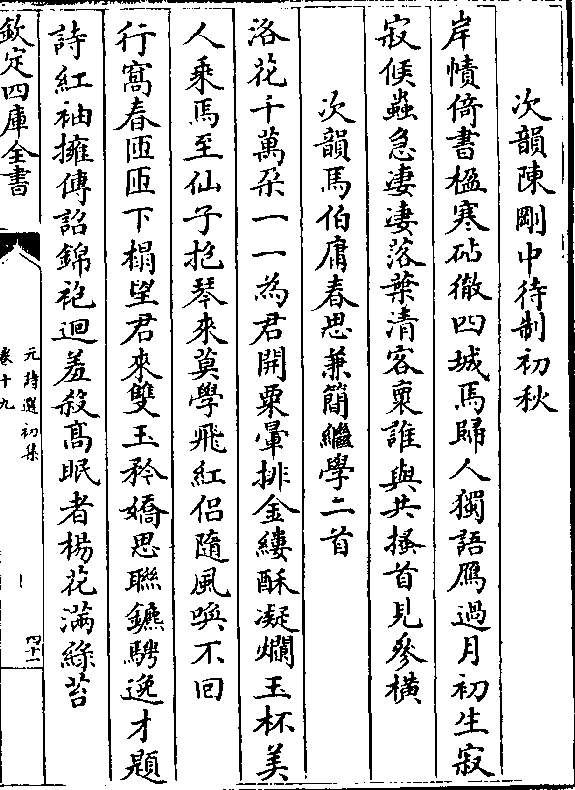 次韻陳剛中待制初秋
岸幘倚書楹寒砧徹四城馬歸人獨語鴈過月初生寂
寂候蟲急淒淒落葉清客裏誰與共搔首見參橫
次韻馬伯庸春思兼簡繼學二首
洛花千萬朶一一為君開粟暈排金縷酥凝爛玉杯美
人乘馬至仙子抱琴來莫學飛紅侣隨風喚不回
行窩春匝匝下榻望君來雙玉矜嬌思聯鑣騁逸才題
詩紅袖擁傳詔錦袍迴羞殺髙眠者楊花滿綠苔
欽定四庫全書
元詩選初集
卷十九
四十一